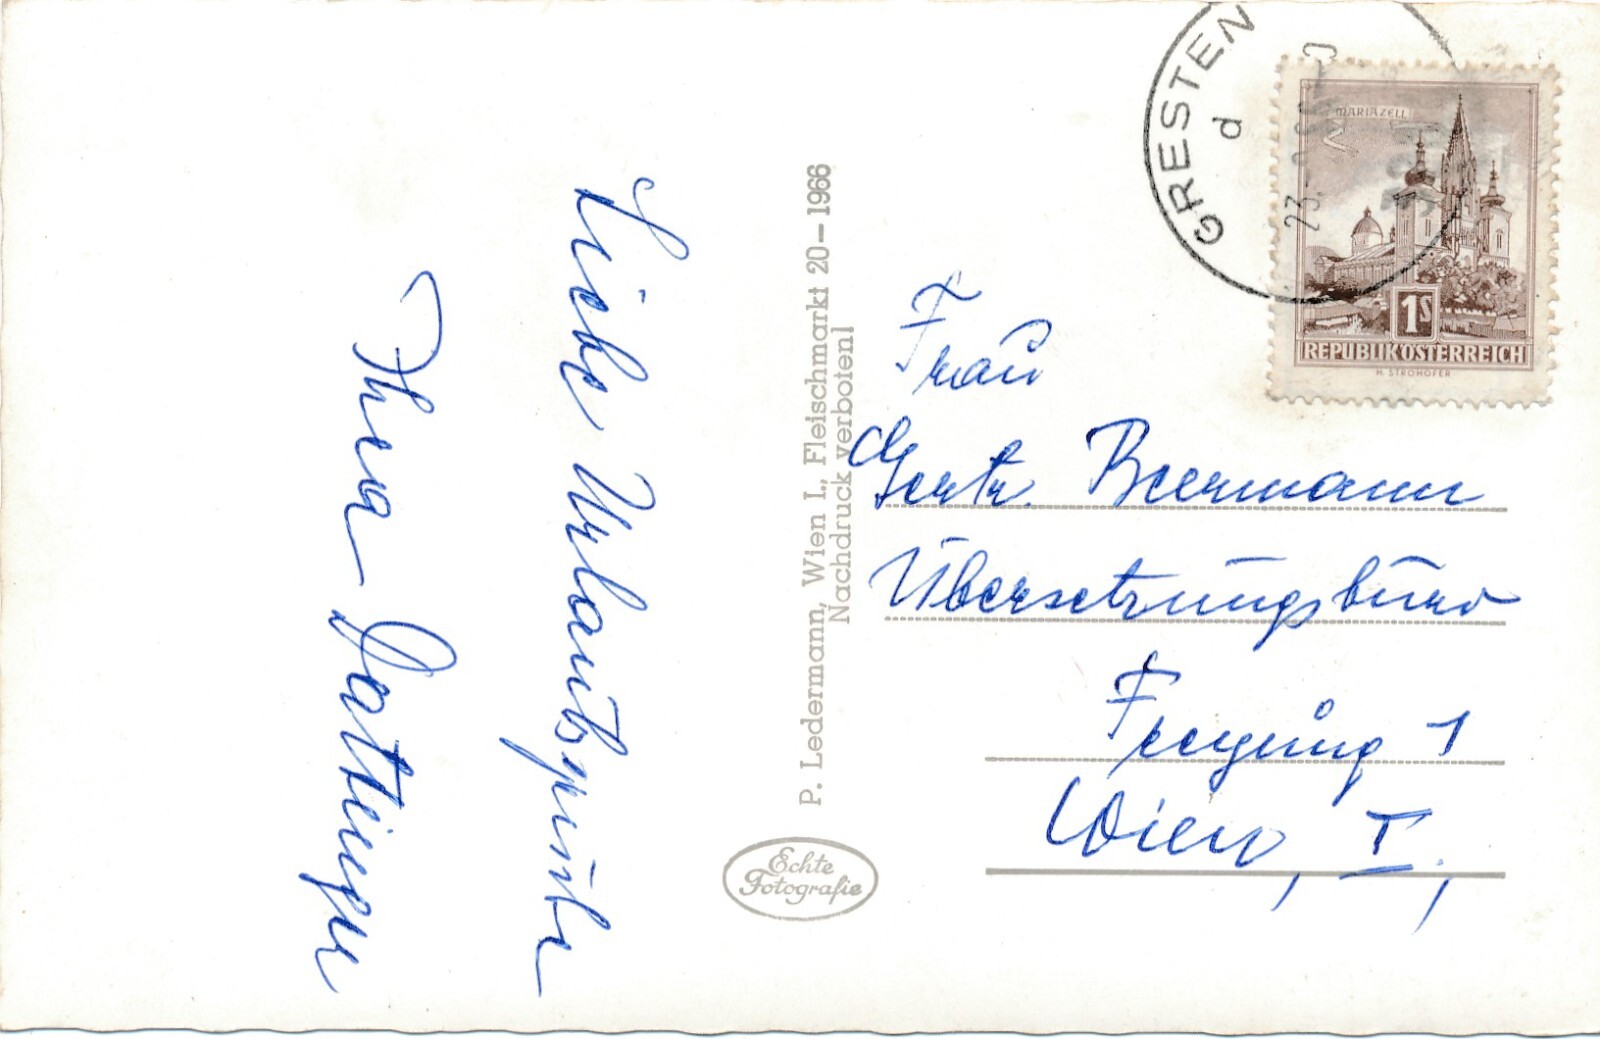 Liebe Urlaubsgrüße
Ihre
P. Ledermann, Wien I., Fleischmarkt 20 – 1966
Nachdruck verboten!
Echte
Fotografie
GRESTEN
d
23.
MARIAZELL
1S
REPUBLIK ÖSTERREICH
H. STROHOFER
Frau
Gertr. Beermann
Übersetzungsbüro
Freyung 1
Wien, I.,